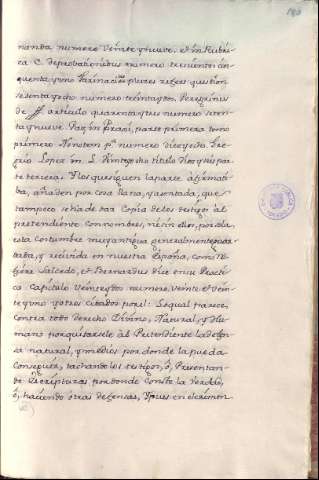 nanda numero veinte y nueve, et in Rubri-
ca C. de probationibus numero trescientos cin-
quenta y uno Farinacius plures refert question
sesenta y ocho numero treinta y dos. Peregrinus
de artículo quarenta y tres numero seten-
ta y nueve. Paz in Praxi, parte primera tomo
primero numero diez y ocho. Gre-
gorio Lopez in L. título
parte tercera. Y los que siguen la parte afirmati-
ba, añaden por cosa llana, y asentada, que
tampoco se ha de dar Copia de los testigos al
pretendiente con nombres, ni sin ellos, por ser
esta costumbre muy antigua generalmente guar-
dada, y recivida en nuestra España, como
Salcedo, et Bernardus Diez en su Practi-
ca Capitulo veinte y dos numero veinte et vein-
te y uno y otros citados por el: Lo qual parece
contra todo derecho Divino, Natural, y Hu-
mano por quitarsele al Pretendiente la defen-
sa natural, y medio por donde la pueda
conseguir, tachando los testigos, ó, Presentan-
do Escripturas por donde conste la verdad,
ó, haciendo otras defensas, Y pues en el crimen